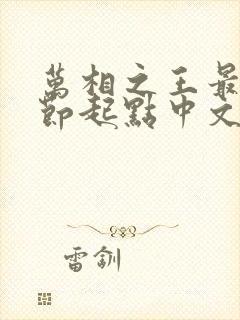 萬相之王最
節起點中文
雷釧